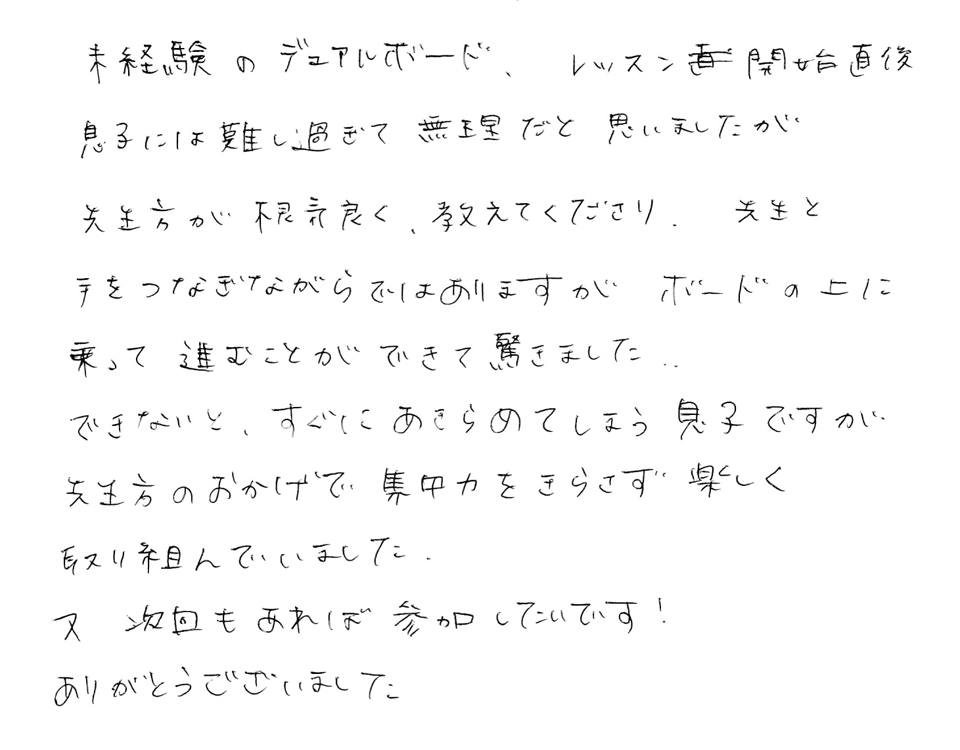 未経験のデュアルボード、 レッスン開始直後
息子には難し過ぎて無理だと思いましたが
先生方が根気良く、教えてくださり、先生と
手をつなぎながらではありますがボードの上に
乗って進むことができて驚きました..
できないと、すぐにあきらめてしまう息子ですが
先生方のおかげで集中力をきらさず楽しく
取り組んでいました.
又 次回もあれば参加したいです!
ありがとうございました